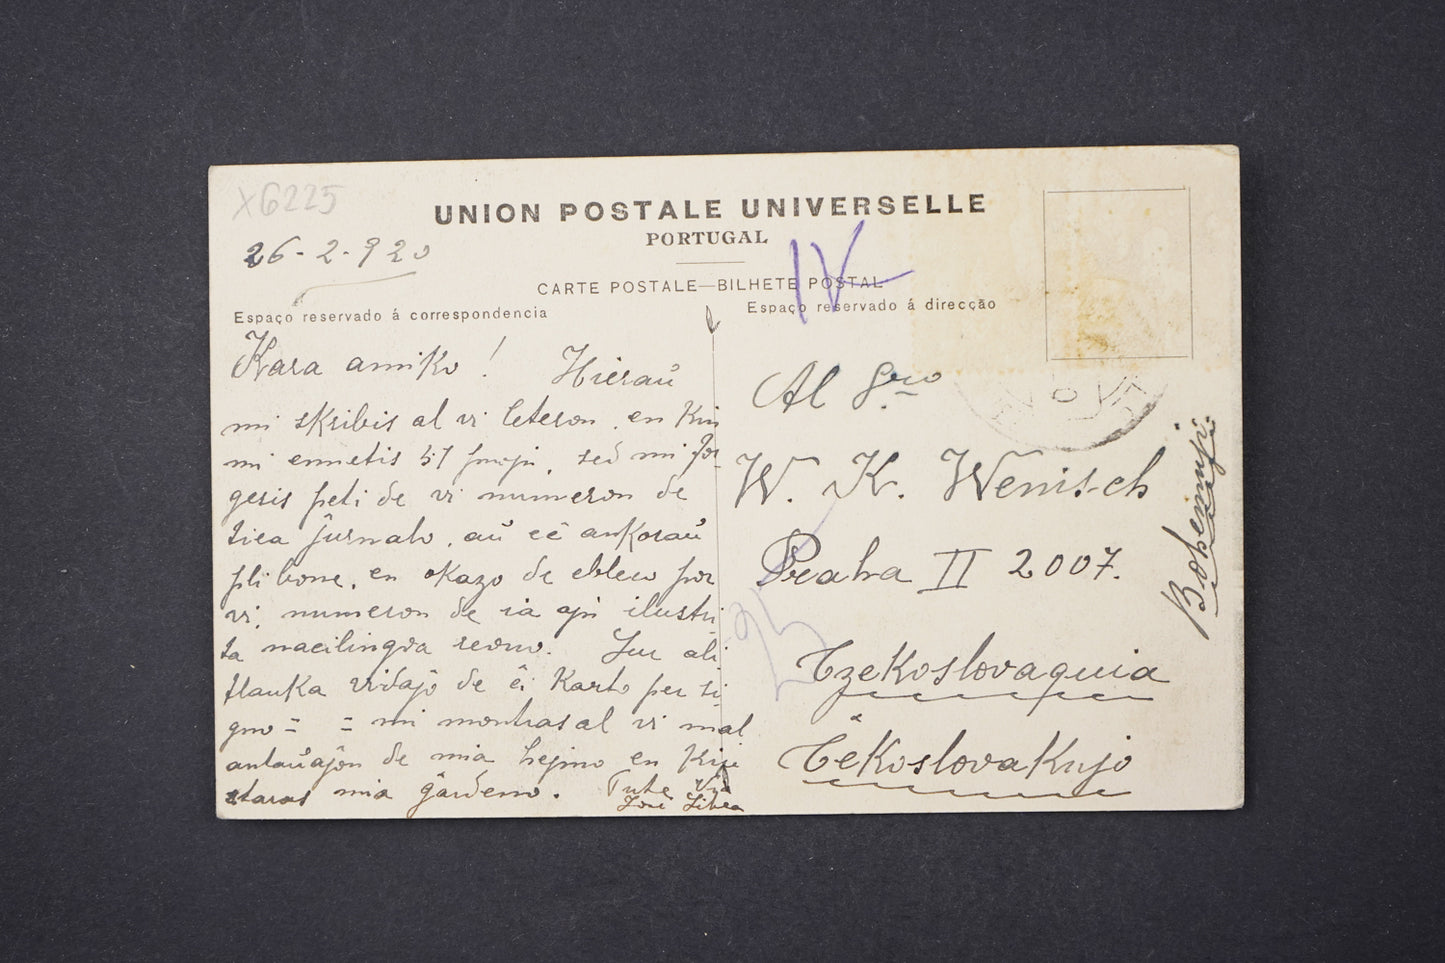 X6225
UNION POSTALE UNIVERSELLE
PORTUGAL
26-2-920
CARTE POSTALE—BILHETE POSTAL
IV
Espaço reservado á correspondencia
Espaço reservado á direcção
Kara amiko! Hieraŭ
mi skribis al vi leteron, en kiu
mi enmetis 51, sed mi for-
gesis peti de vi numeron de
tiea ĵurnalo, aŭ eĉ ankoraŭ
pli bone, en okazo de ebleco por
vi, numeron de ia ajn ilustri-
ta nacilingva revuo. Sur ali-
flanka vidaĵo de ĉi karto per si-
gno = = mi montras al vi mal
antaŭaĵon de mia hejmo en kiu
staras mia ĝardeno. Tute Via
José
Al S.ro
W. K. Wenisch
Praha II 2007.
Czekoslovaquia
Ĉekoslovakujo
Bohemujo